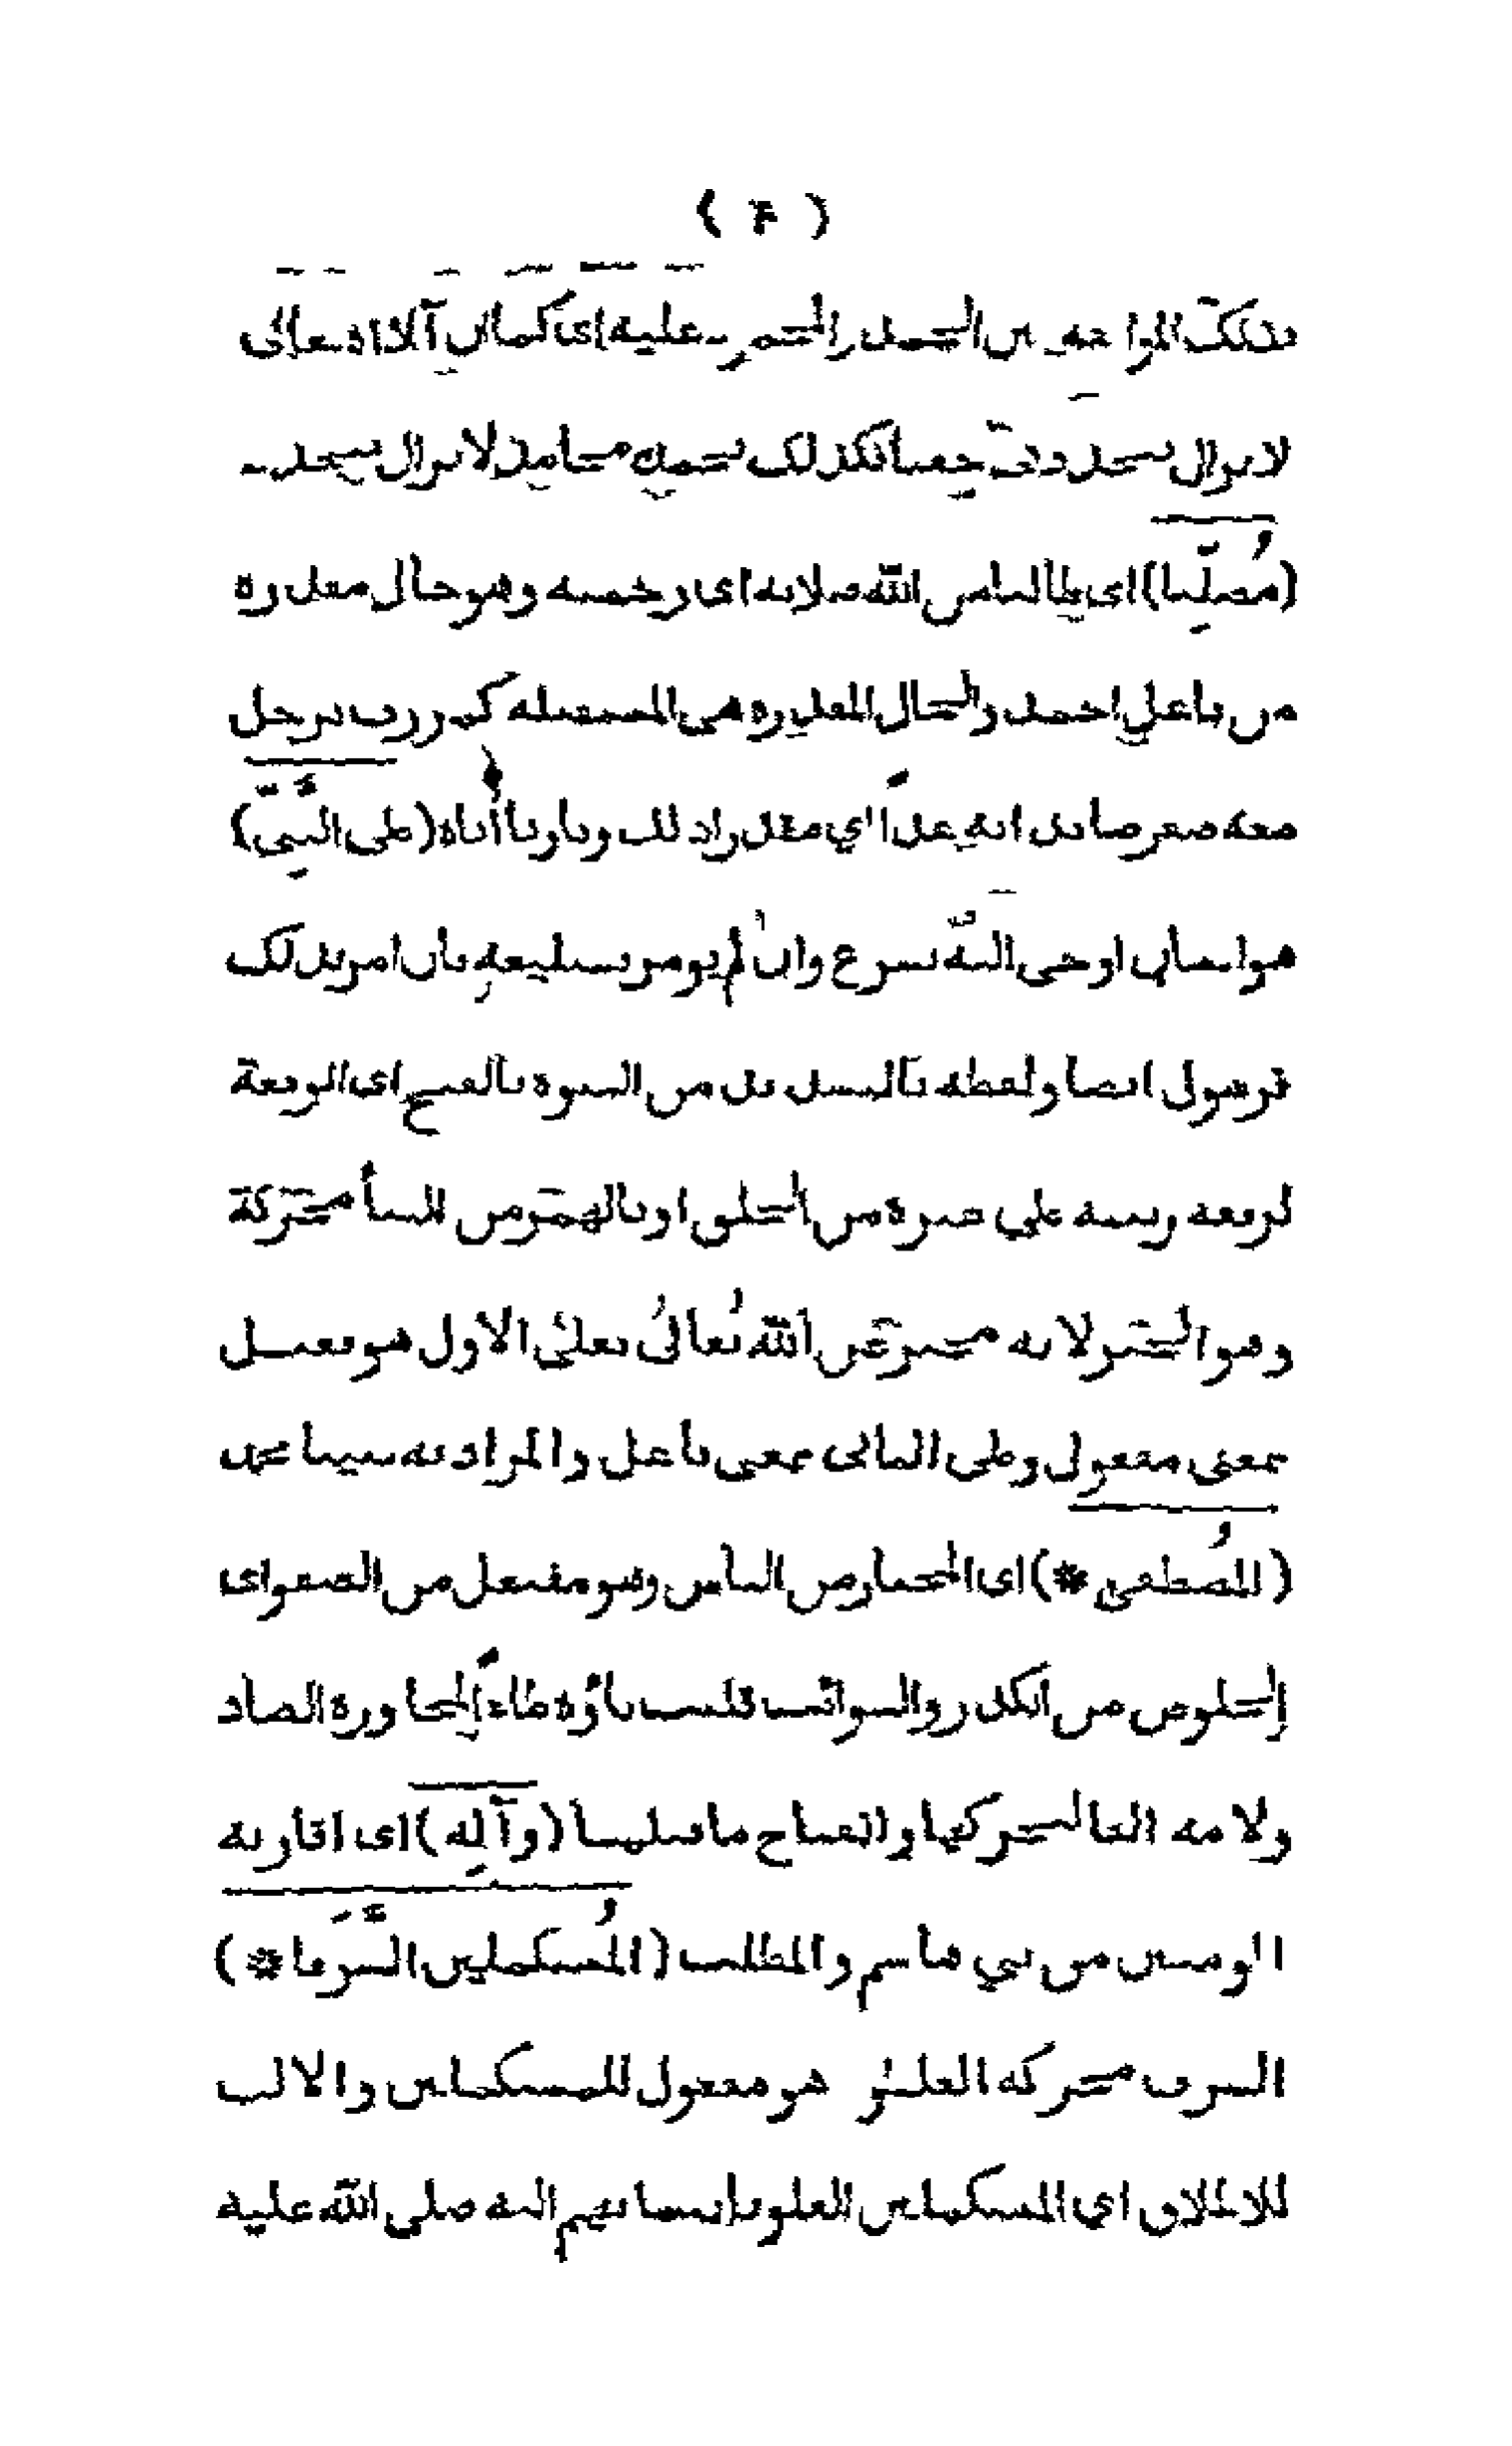 ( ۴ )
بذلك المواخه بين الحمد والمحمود عليه اى كما ان آلاءه تعالى
لا يزال يتجدد دائما كذلك نحمده محامد لا يزال يتجدد
(مُصلِّيا) اى طالبا من الله صلاته اى رحمته وهو حال مقدرة
من فاعل احمد والحال المقدرة هى المستقبلة كمررت برجل
معه صقر صائدا به غدًا اي مقدرا ذلك وناويا اياه (على النَّبِيّ)
هو انسان اوحى اليه بشرع وان لم يومر بتبليغه فان امر بذلك
فرسول ايضا ولفظه بالتشديد من النبوة بالفتح اى الرفعة
لرفعه رتبته على غيره من الخلق او بالهمز من النبأ محركة
وهو الخبر لانه مخبر عن الله تعالى فعلى الاول هو فعيل
بمعنى مفعول وعلى الثانى بمعنى فاعل والمراد به نبينا محمد
(المُصطفى *) اى المختار من الناس وهو مفتعل من الصفو اى
الخلوص من الكدر والشوائب قلبت تاؤه طاءً لمجاورة الصاد
ولامه الفا لتحركها وانفتاح ما قبلها (وآلِه) اى اقاربه
المومنين من بني هاشم والمطلب (المُستكملين الشَّرفا *)
الشرف محركه العلو هو مفعول للمستكملين والالف
للاطلاق اي المستكملين العلو بانتسابهم اليه صلى الله عليه